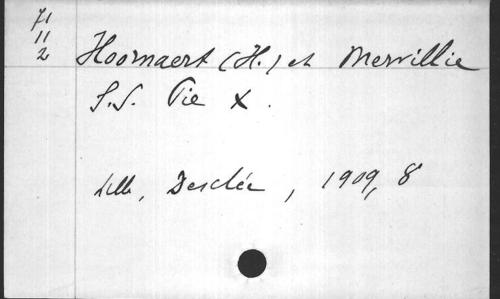 71
11
2
Hoornaert (H.) et Mervillie
S.S. Pie X.
Lille, Desclée, 1909, 8